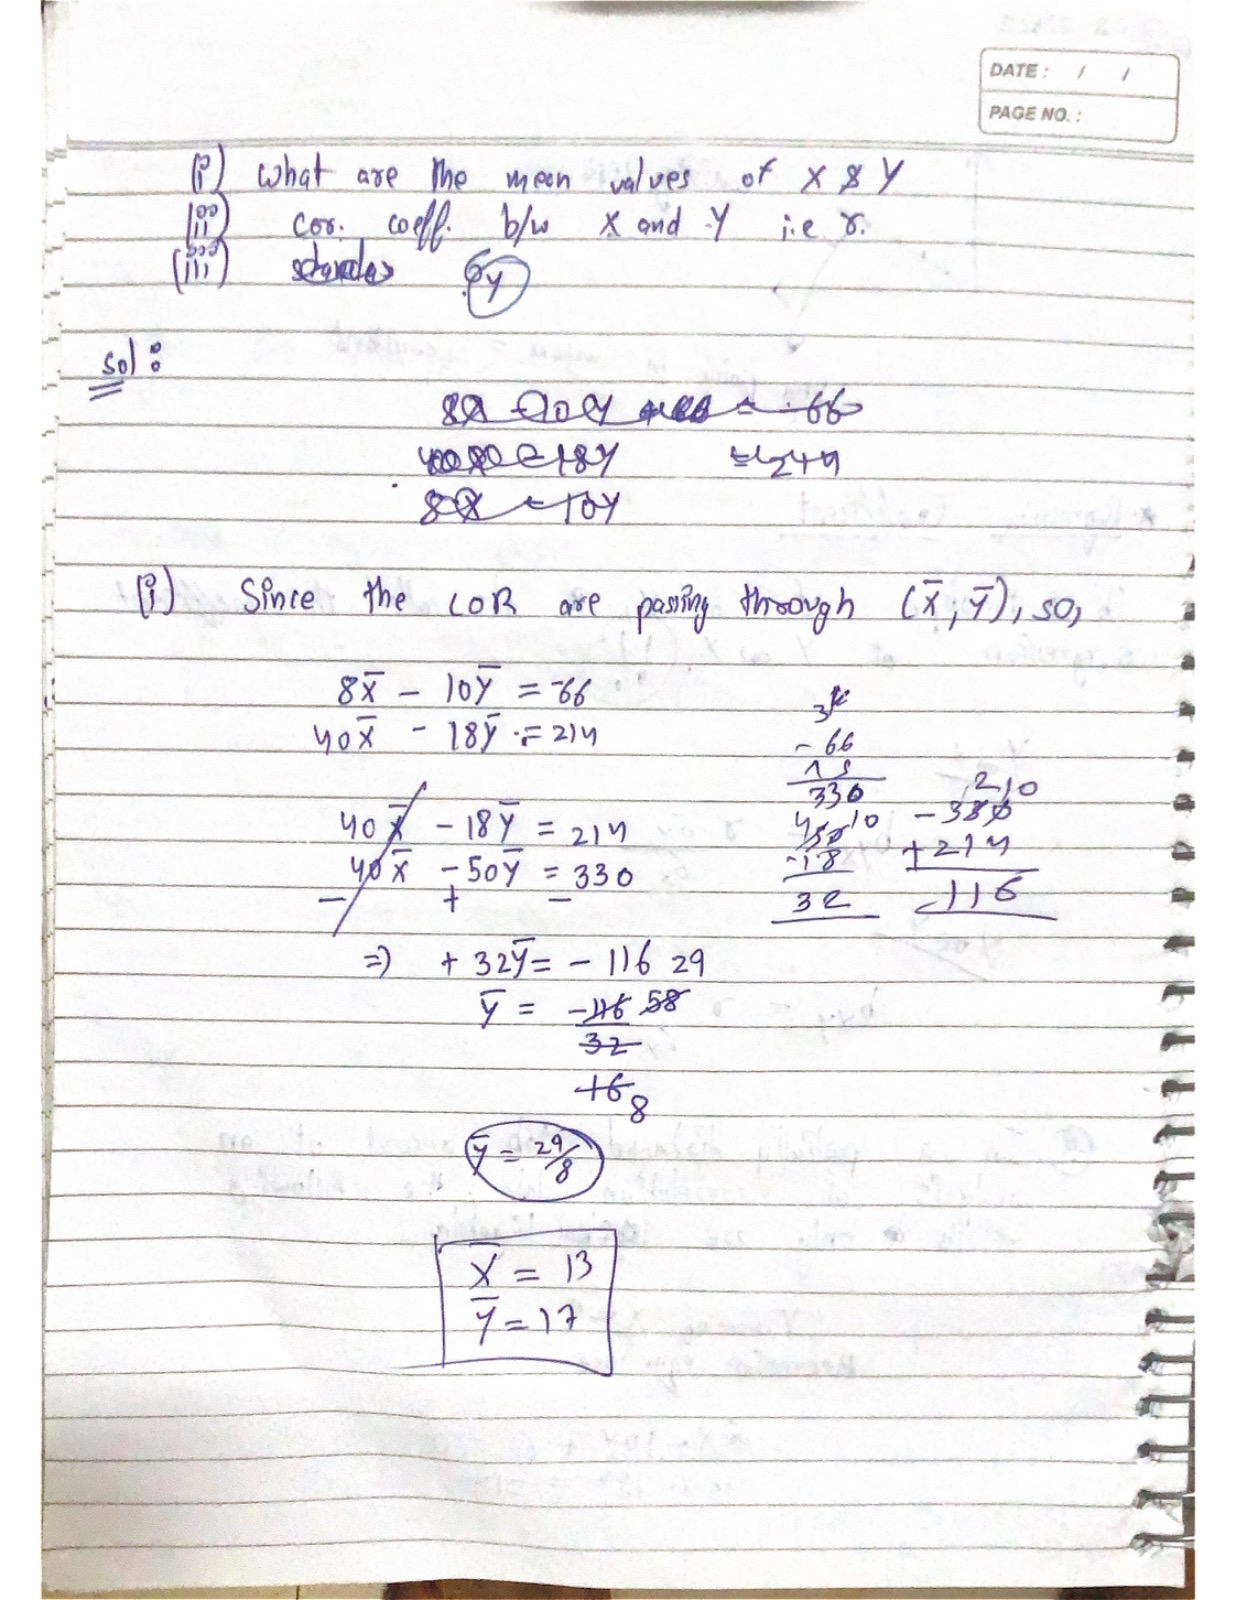 DATE: / /
PAGE NO.:
(i) What are the mean values of X & Y
(ii) cor. coeff. b/w X and Y i.e r.
(iii) σy
sol:
8X - 10Y = -66
- 18Y = 214
8X - 10Y
(i) Since the LOR are passing through (X̄, Ȳ), so,
8X̄ - 10Ȳ = -66
40X̄ - 18Ȳ = 214
40X̄ - 18Ȳ = 214
40X̄ - 50Ȳ = 330
- + -
⇒ + 32Ȳ = - 116 29
Ȳ = -116 58
32
16 8
Ȳ = 29/8
X̄ = 13
Ȳ = 17
3
- 66
330
4 10
50
-18
32
2 10
- 330
+ 214
- 116